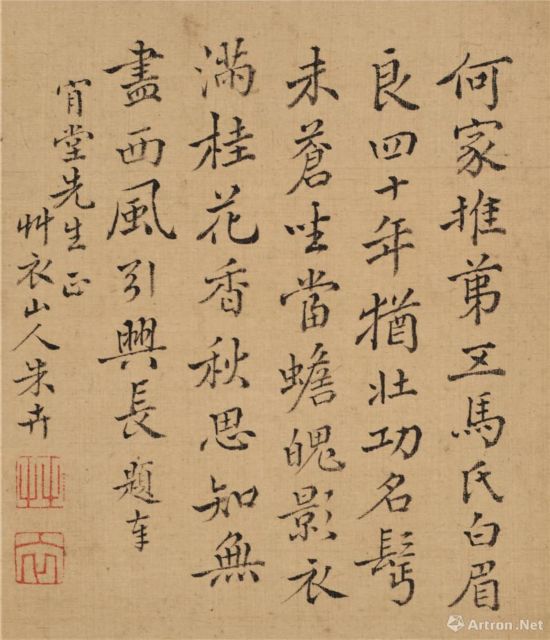 何家推第五馬氏白眉
良四十年猶壯功名鬢
未蒼坐當蟾魄影衣
滿桂花香秋思知無
盡西風引興長題奉
宵堂先生正
艸衣山人朱卉
艸
衣
Artron.Net